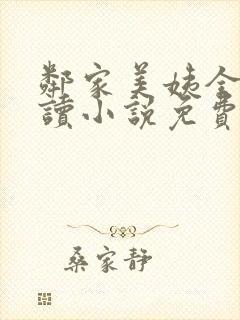 鄰家美姨全
讀小說免費
桑家靜